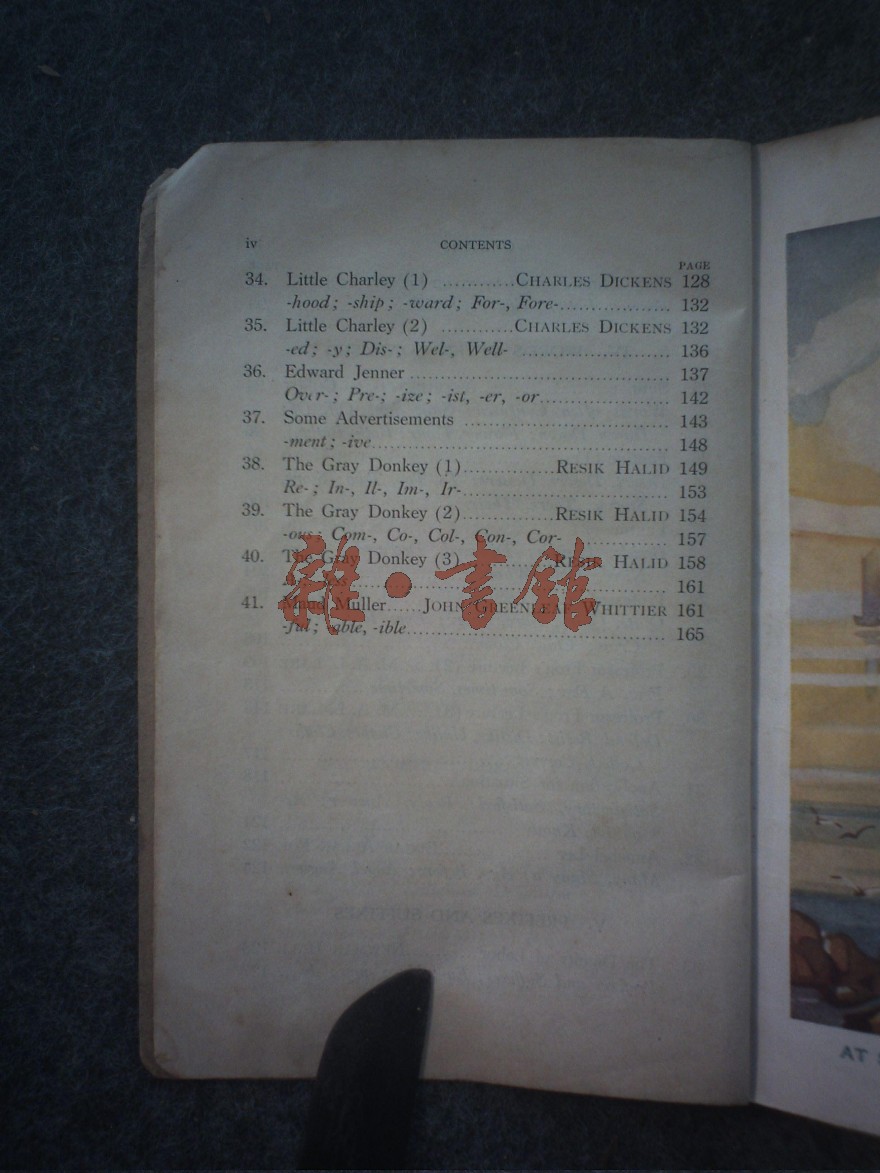 iv CONTENTS
PAGE
34. Little Charley (1) ............CHARLES DICKENS 128
-hood; -ship; -ward; For-, Fore-.................. 132
35. Little Charley (2) ............CHARLES DICKENS 132
-ed; -y; Dis-; Wel-, Well- ........................ 136
36. Edward Jenner .......................................... 137
Over-; Pre-; -ize; -ist, -er, -or..................... 142
37. Some Advertisements ................................. 143
-ment; -ive................................................ 148
38. The Gray Donkey (1)...............RESIK HALID 149
Re-; In-, Il-, Im-, Ir-.................................. 153
39. The Gray Donkey (2)...............RESIK HALID 154
-ous; Com-, Co-, Col-, Con-, Cor- ............... 157
40. The Gray Donkey (3)...............RESIK HALID 158
161
41. Maud Muller......JOHN GREENLEAF WHITTIER 161
-ful; -able, -ible.......................................... 165
雜·書館
AT